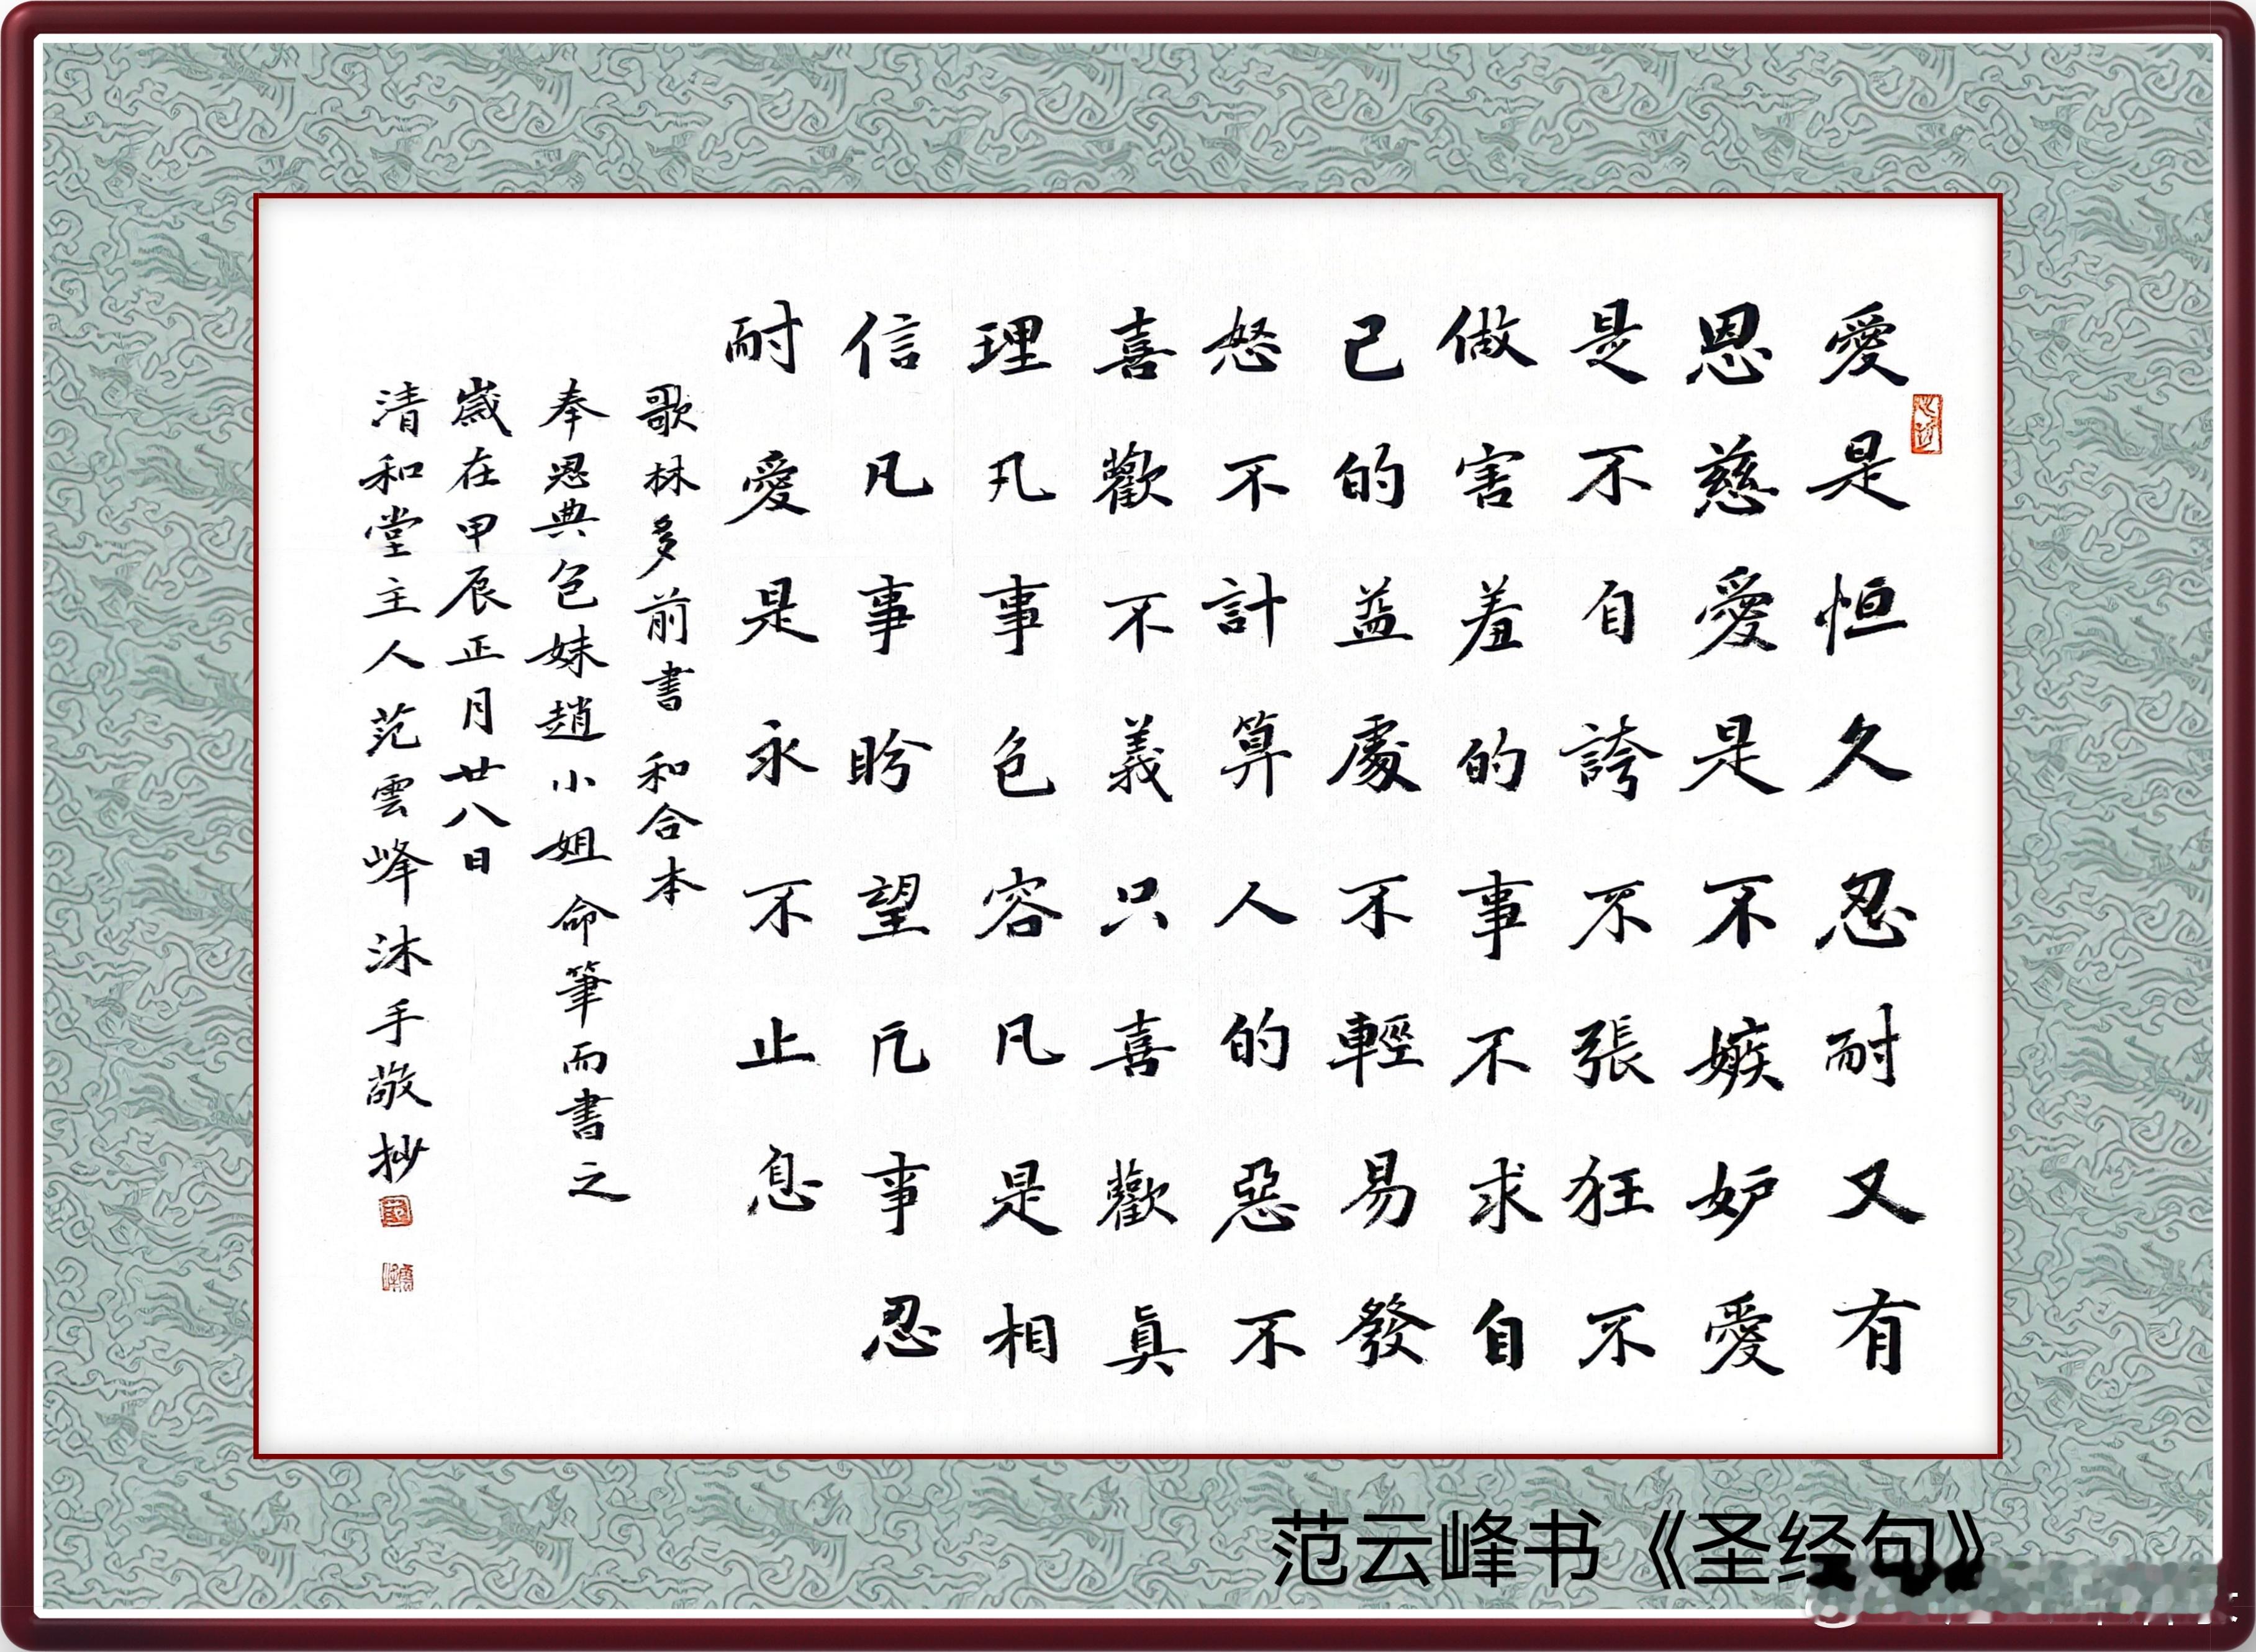 愛是恒久忍耐又有
恩慈愛是不嫉妒愛
是不自誇不張狂不
做害羞的事不求自
己的益處不輕易發
怒不計算人的惡不
喜歡不義只喜歡眞
理凡事包容凡是相
信凡事盼望凡事忍
耐愛是永不止息
歌林多前書 和合本
奉恩典包妹趙小姐命筆而書之
歲在甲辰正月廿八日
清和堂主人范雲峰沐手敬抄
范云峰书《圣经句》